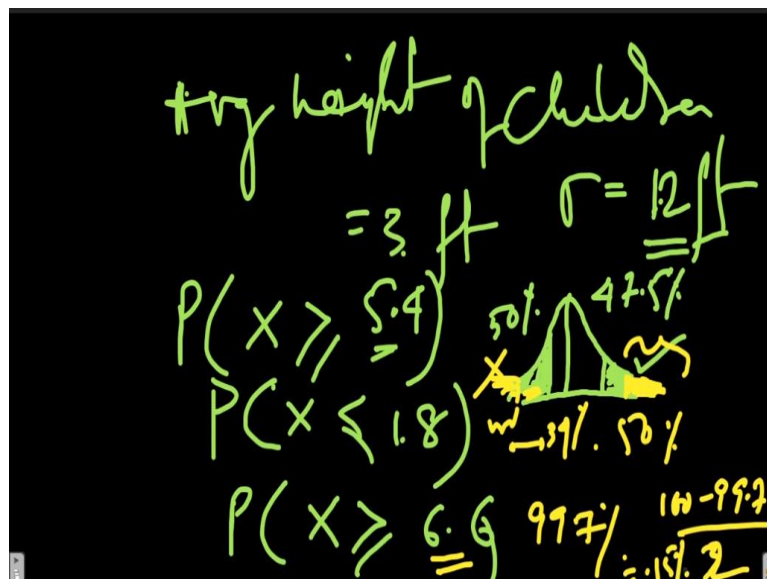 Avg height of Children
= 3 ft σ = 1.2 ft
P(X ≥ 5.4) 50% 47.5%
P(X ≤ 1.8) 34% 50%
P(X ≥ 6.6) 99.7% 100-99.7
= .15% 2